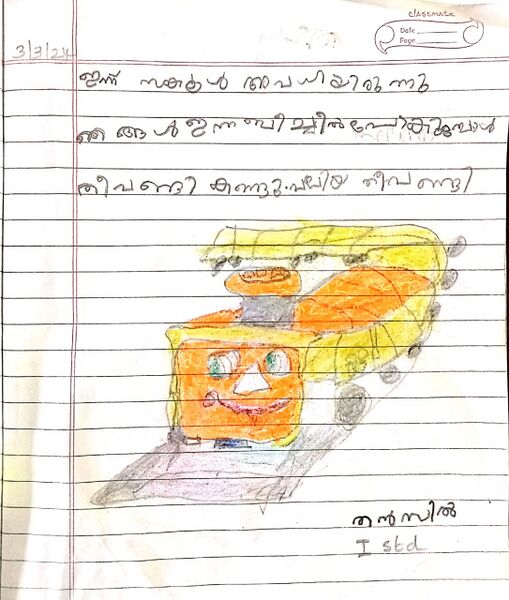 classmate
Date
Page
3/3/24
ഇന്ന് സകൂൾ അവധിയിരുന്നു
ഞങ്ങൾ ഇന്ന ബീച്ചിൽ പോകുമ്പോൾ
തീവണ്ടി കണ്ടു. വലിയ തീവണ്ടി
തൻസിൽ
I std